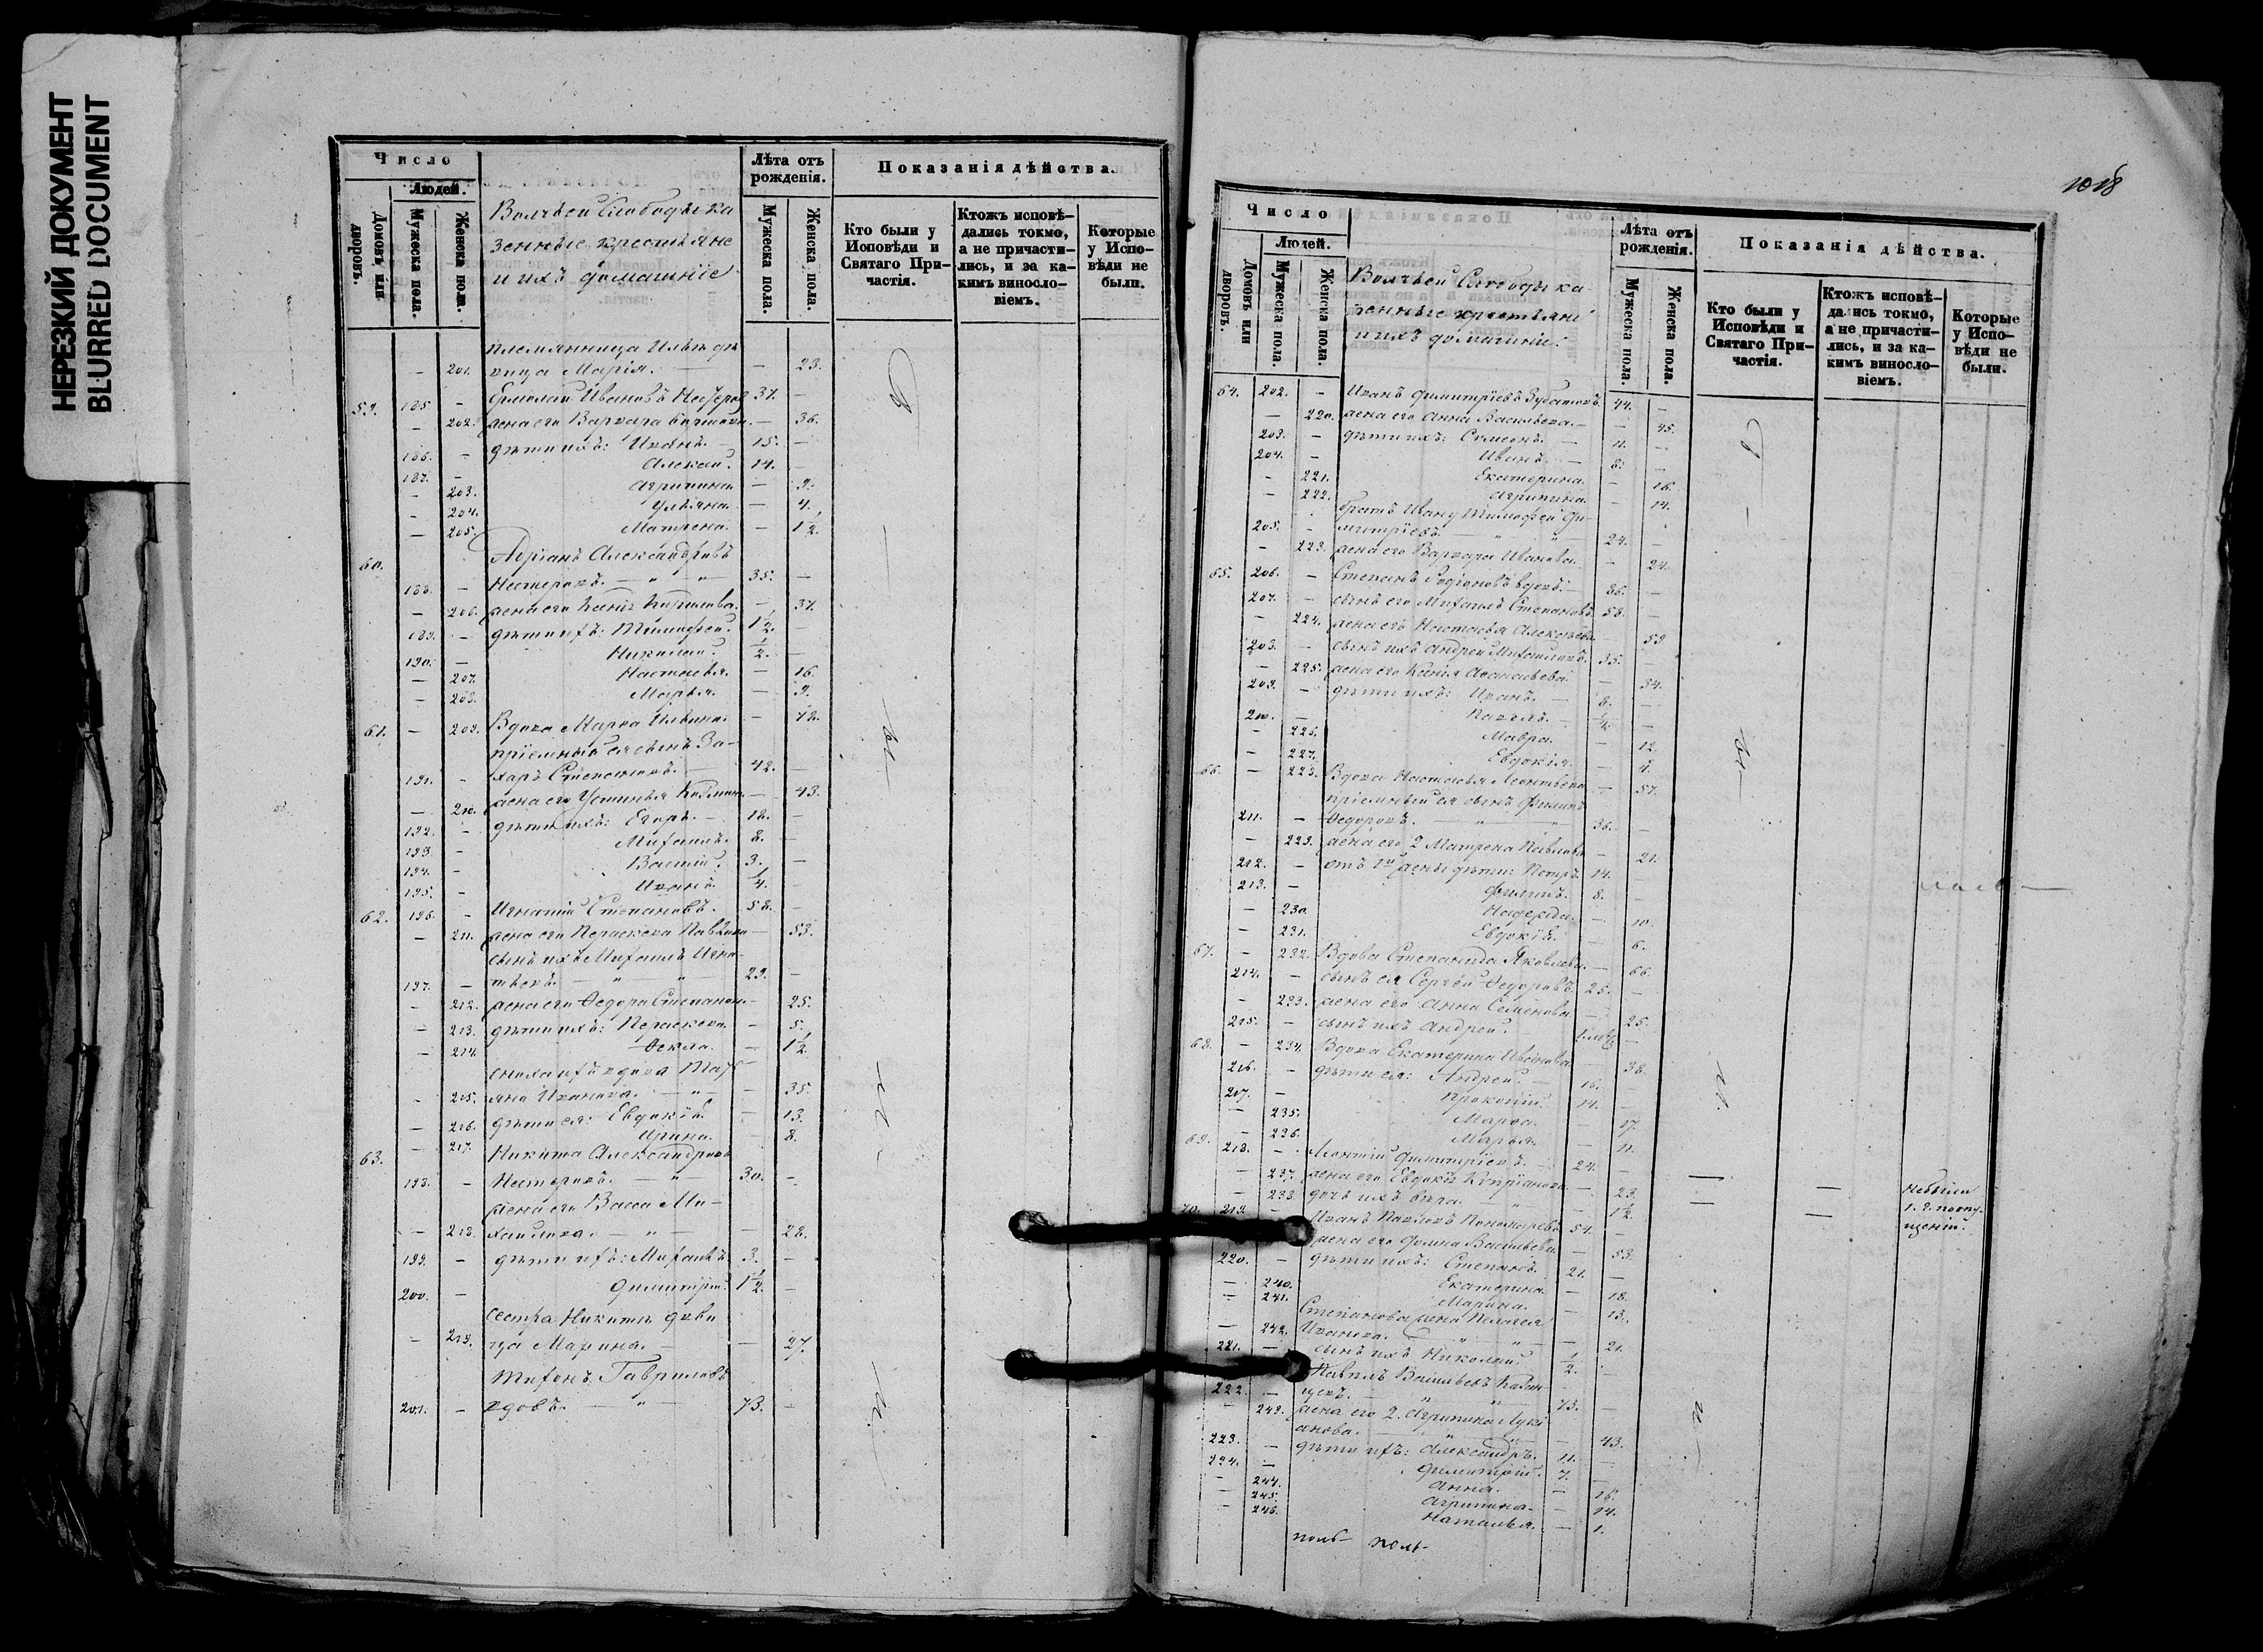 НЕРЕЗКИЙ ДОКУМЕНТ
BLURRED DOCUMENT
Число
Людей.
Домовъ или дворовъ.
Мужеска пола.
Женска пола.
Волчьей Слободы ка
зенные крестьяне
и ихъ домашніе
Лѣта отъ рожденія.
Мужеска пола.
Женска пола.
Показанія дѣйства.
Кто были у Исповѣди и Святаго Причастія.
Ктожъ исповѣдались токмо, а не причастились, и за какимъ винословіемъ.
Которые у Исповѣди не были.
племянница Ильи дѣ
— 201. вица Марія. — 23.
59. 185 — Ермолай Ивановъ 37. —
— 202. жена его Варвара — 36.
186. — дѣти ихъ: Иванъ. 15. —
187. — Алексей. 14. —
— 203. Агрипина — 9.
— 204. Ульяна. — 4.
— 205. Матрена. — 1/2.
60. Адріанъ Александровъ
188. — Нестеровъ. — " — 35. —
— 206. жена его Ксенія Кирилова. — 37.
189. — дѣти ихъ: Тимофей. 1 1/2. —
190. — Николай. 1/2. —
— 207. Настасья. — 16.
— 208. Марья. — 9.
61. — 209. Вдова Марѳа Ильина. — 72.
пріемный ея сынъ За-
191. — харъ Степановъ. 42. —
— 210. жена его Устинья — 43.
192. — дѣти ихъ: Егоръ. 18. —
193. — Михаилъ. 8. —
194. — Василій. 3. —
195. — Иванъ. 1/4. —
62. 196. — Игнатій Степановъ. 58. —
— 211. жена его Параскева Павлова — 53.
сынъ ихъ Михаилъ Игна-
197. — тьевъ. — " — 29. —
— 212. жена его Ѳедора Степанова — 25.
— 213. дѣти ихъ: Параскева — 5.
— 214. Ѳекла. — 1 1/2.
сноха ихъ вдова Тать
— 215. яна Иванова. — " — 35.
— 216. дѣти ея: Евдокія — 13.
— 217. Ирина. — 8.
63. Никита Александровъ
198. — Нестеровъ. — " — 30. —
жена его Васса Ми-
— 218. хайлова. — " — 28.
199. — дѣти ихъ: Михаилъ 3. —
200. — Димитрій. 1 1/2. —
сестра Никиты дѣви
— 219. ца Марина. — 27.
Тихонъ Гавриловъ
201. — вдовъ. — " — 73. —
1018
Число
Людей.
Домовъ или дворовъ.
Мужеска пола.
Женска пола.
Волчьей Слободы ка-
зенные крестьяне
и ихъ домашніе.
Лѣта отъ рожденія.
Мужеска пола.
Женска пола.
Показанія дѣйства.
Кто были у Исповѣди и Святаго Причастія.
Ктожъ исповѣдались токмо, а не причастились, и за какимъ винословіемъ.
Которые у Исповѣди не были.
64. 202. — Иванъ Димитріевъ 44. —
— 220. жена его Анна Васильева. — 45.
203. — дѣти ихъ: Симеонъ. 11. —
204. — Иванъ. 8. —
— 221. Екатерина. — 16.
— 222. Агрипина. — 14.
братъ Ивану Тимофей Ди-
205. — митріевъ. — " 24. —
— 223. жена его Варвара Иванова — 24.
65. 206. — Степанъ Родіоновъ вдовъ. 86. —
207. — сынъ его Михаилъ Степановъ 58. —
— 224. жена его Настасья Алексѣева — 59
208. — сынъ ихъ Андрей Михайловъ. 35. —
— 225. жена его Ксенія Аѳанасьева — 34.
209. — дѣти ихъ: Иванъ. 8. —
210. — Павелъ. 1/4. —
— 226. Мавра. — 12.
— 227. Евдокія. — 4.
66. — 228. Вдова Настасья Леонтьева — 57.
пріемный ея сынъ Филипъ
211. — Ѳедоровъ. — " — 36. —
— 229. жена его 2 Матрена Павлова — 21.
212. — отъ 1й жены дѣти: Петръ. 14. —
213. — Филипъ. 8. —
— 230. Надежда. — 10.
— 231. Евдокія. — 6.
67. — 232. Вдова Степанида Яковлева. — 66.
214. — сынъ ея Сергей Ѳедоровъ. 25. —
— 233. жена его Анна Семенова — 25.
215. — сынъ ихъ Андрей.
68. — 234. Вдова Екатерина Иванова — 38.
216. — дѣти ея: Андрей. 16. —
217. — Прокопій. 14. —
— 235. Марѳа. — 17.
— 236. Марья. — 11.
69. 218. — Леонтій Димитріевъ. 24. —
— 237. жена его Евдокія Кипріанова — 23.
— 238 дочь ихъ Вѣра. — 1 1/2.
небыли
70. 219. — Иванъ Павловъ Пономаревъ 54. —
жена его Домна Васильева — 53.
220. — дѣти ихъ: Степанъ. 21. —
— 240. Екатерина — 18.
— 241. Марина. — 13.
Степанова жена Пелагея
— 242. Иванова. — " — 21.
221. — сынъ ихъ Николай. 1/2. —
Павелъ Васильевъ
222. — 73. —
— 243. жена его 2. Агрипина Луки
анова. — 43.
223. — дѣти ихъ: Александръ. 11. —
224. — Димитрій. 7. —
— 244. Анна. — 16.
— 245. Агрипина. — 14.
— 246. Наталья. — 1.